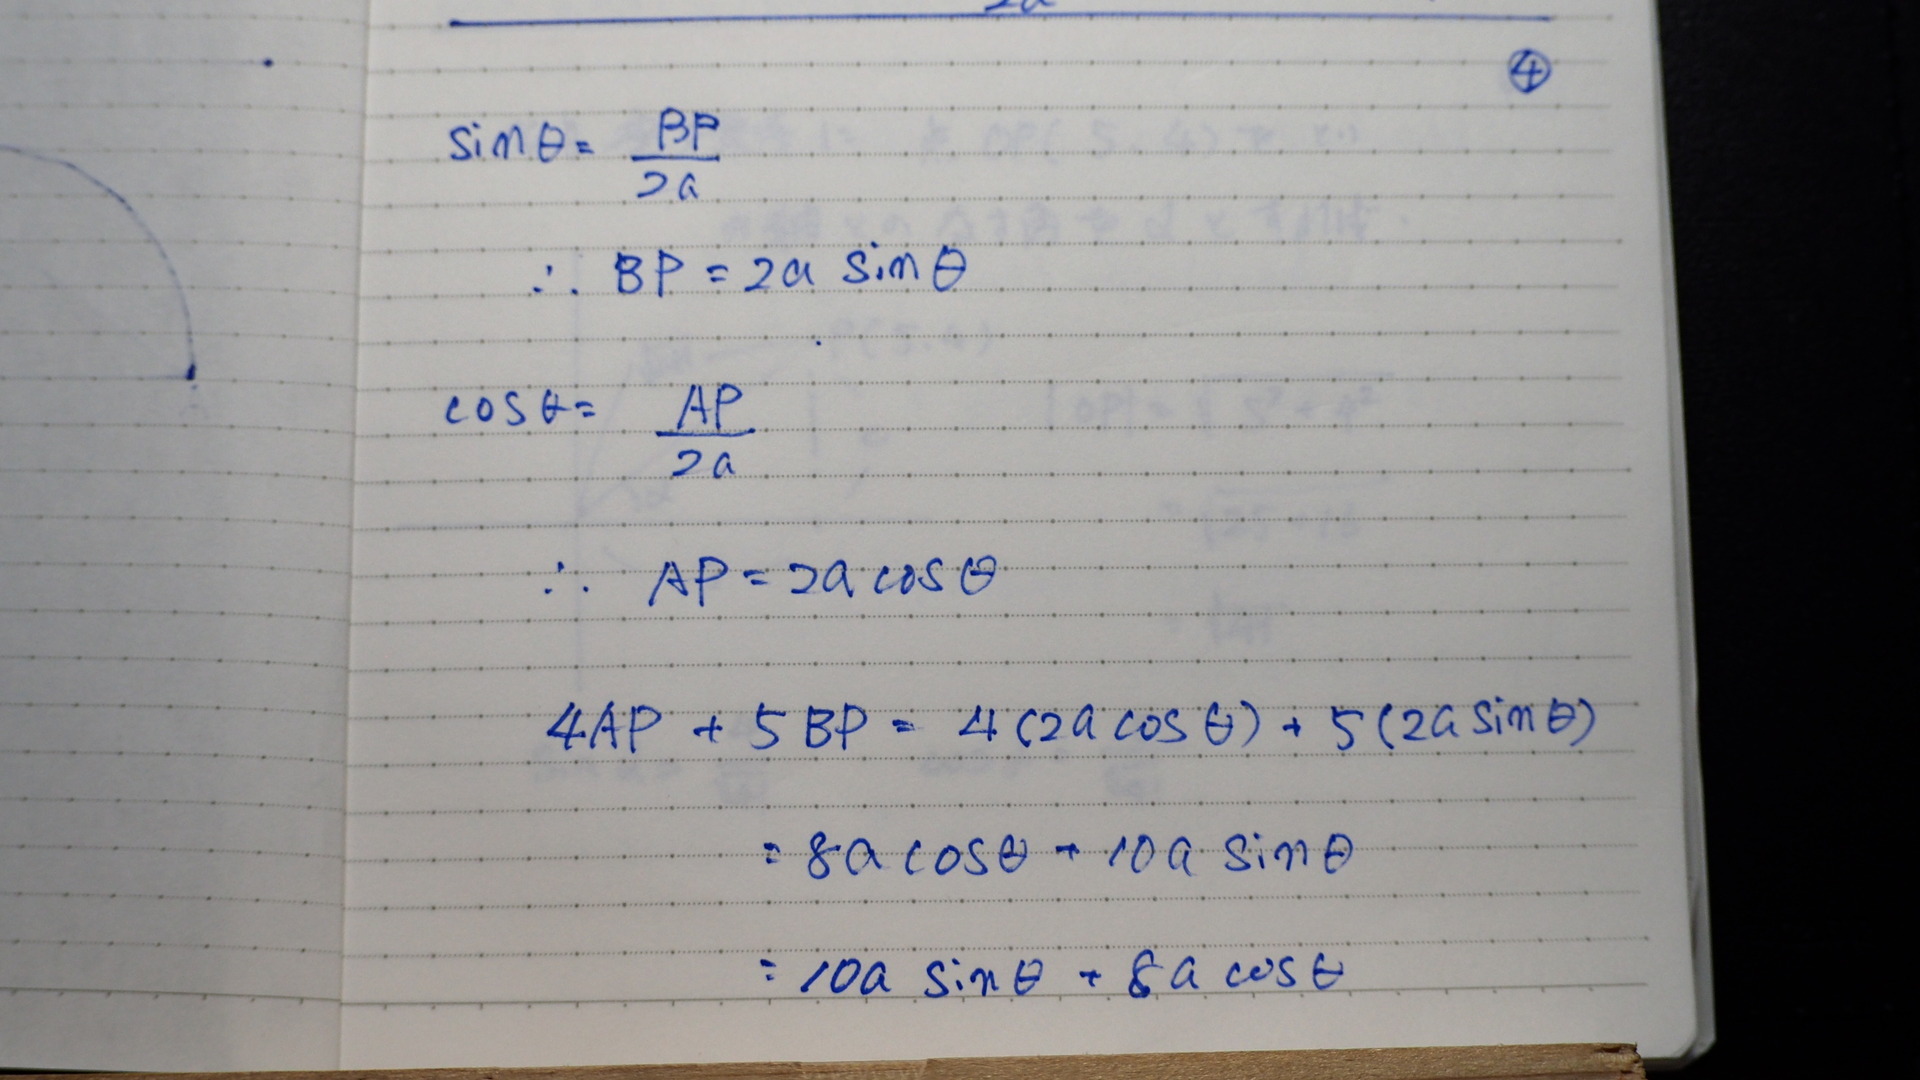 2a
④
sinθ = BP/2a
∴ BP = 2a sinθ
cosθ = AP/2a
∴ AP = 2a cosθ
4AP + 5BP = 4(2a cosθ) + 5(2a sinθ)
= 8a cosθ + 10a sinθ
= 10a sinθ + 8a cosθ